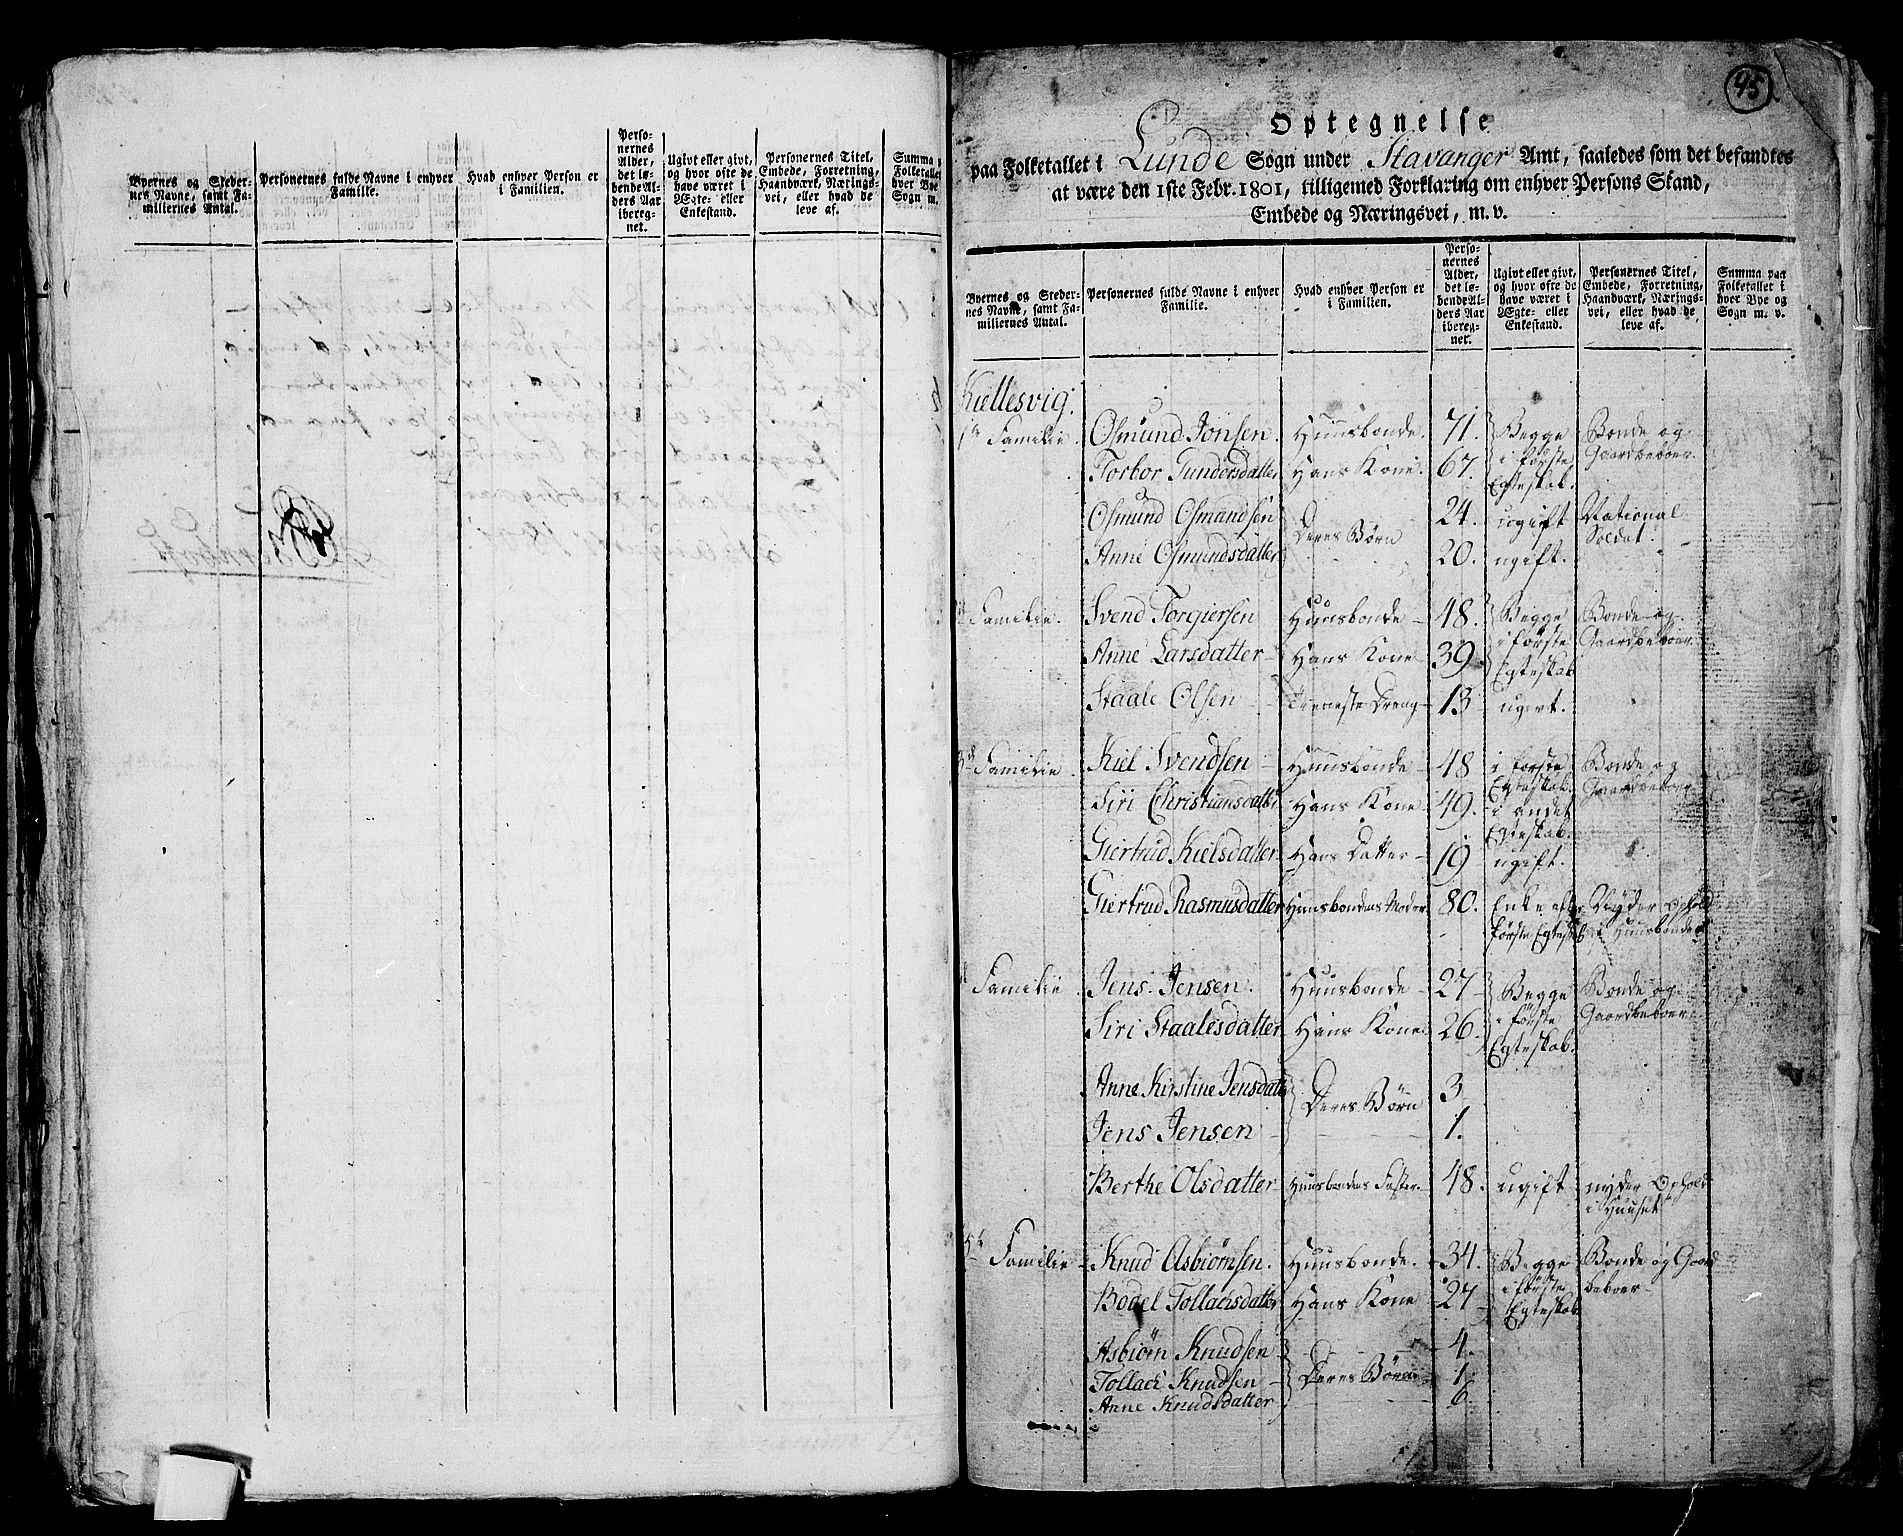 Byernes og Steder-
nes Navne, samt Fa-
miliernes Antal.
Personernes fulde Navne i enhver
Familie.
Hvad enhver Person er
i Familien.
Perso-
nernes
Alder,
det lø-
bende Al-
ders Aar
ibereg-
net.
Ugivt eller givt,
og hvor ofte de
have været i
Ægte- eller
Enkestand.
Personernes Titel,
Embede, Forretning,
Haandværk, Nærings-
vei, eller hvad de
leve af.
Summa p
Folketallet
hver Bye
Sogn m.
95
Optegnelse
paa Folketallet i Lunde Sogn under Stavanger Amt, saaledes som det befandtes
at være den 1ste Febr. 1801, tilligemed Forklaring om enhver Persons Stand,
Embede og Næringsvei, m. v.
Byernes og Steder-
nes Navne, samt Fa-
miliernes Antal.
Personernes fulde Navne i enhver
Familie.
Hvad enhver Person er
i Familien.
Perso-
nernes
Alder,
det lø-
bende Al-
ders Aar
ibereg-
net.
Ugivt eller givt,
og hvor ofte de
have været i
Ægte- eller
Enkestand.
Personernes Titel,
Embede, Forretning,
Haandværk, Nærings-
vei, eller hvad de
leve af.
Summa paa
Folketallet i
hver Bye og
Sogn m. v.
Kiellesvig.
1te Familie. Osmund Jonsen. Huusbonde. 71. Begge Bonde og
Torbor Gundersdatter Hans Kone 67. i første Gaardbeboer
Egteskab.
Osmund Osmundsen Deres Børn 24. ugift National
Soldat.
Anne Osmundsdatter 20. ugift.
Familie. Svend Torgiersen Huusbonde 48. Begge Bonde og
Anne Larsdatter Hans Kone 39. i første Gaardbeboer
Egteskab
Staale Olsen Tieneste Dreng 13 ugivt.
3d Familie. Kiel Svendsen Huusbonde 48 i første Bonde og
Egteskab. Gaardbeboer
Siri Christiansdatter Hans Kone 49. i andet
Egteskab.
Giertrud Kielsdatter Hans Datter 19 ugift.
Giertrud Rasmusdatter Huusbondens Moder. 80. Enke efter Nyder Ophold
første Egteskab i Huusbondes
Familie Jens Jensen. Huusbonde 27 Begge Bonde og
Siri Staalesdatter Hans Kone 26. i første Gaardbeboer
Egteskab.
Anne Kirstine Jensdatter Deres Børn 3
Jens Jensen 1.
Berthe Olsdatter Huusbondens Faster 48. ugift nyder Ophold
i Huuset
5te Familie Knud Asbiørnsen. Huusbonde. 34. Begge Bonde og Gaard
Bodel Tollachsdatter Hans Kone 27 i første beboer
Egteskab
Asbiørn Knudsen 4.
Tollach Knudsen Deres Børn 1
Anne Knudsdatter 6.